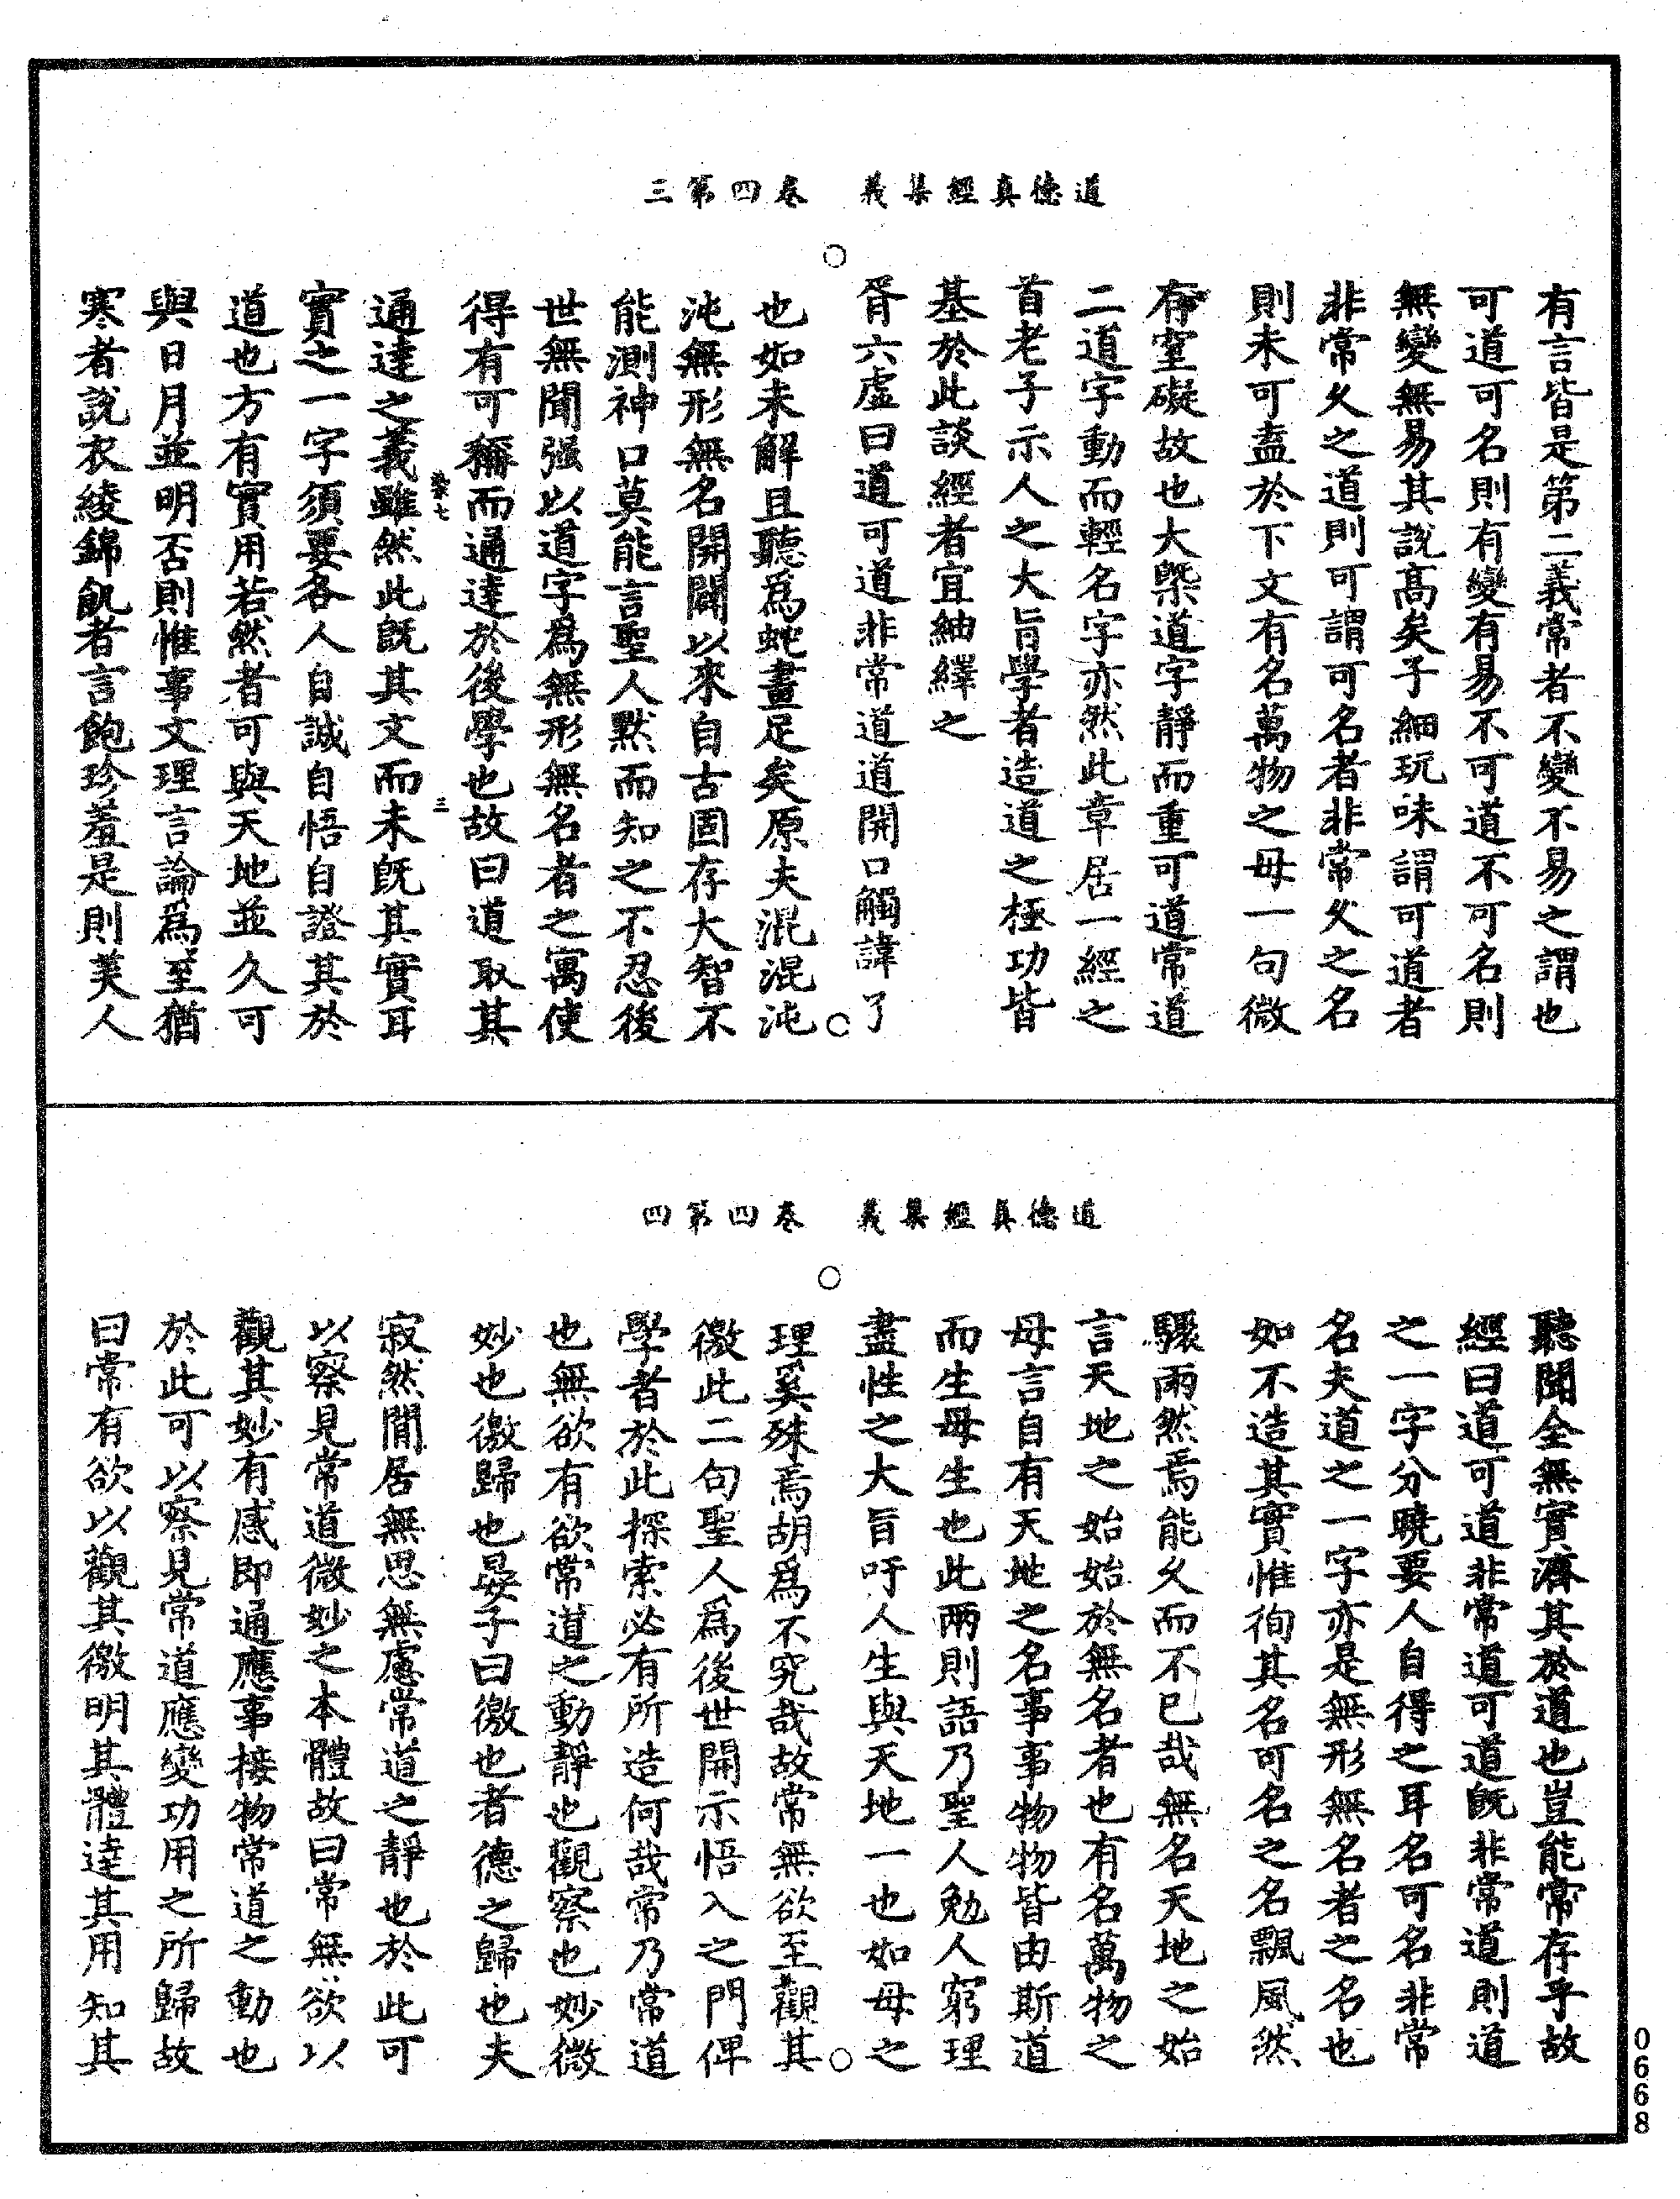 道德真經集義　卷四第三
有言皆是第二義常者不變不易之謂也
可道可名則有變有易不可道不可名則
無變無易其說高矣子細玩味謂可道者
非常久之道則可謂可名者非常久之名
則未可蓋於下文有名萬物之母一句微
有窒礙故也大槩道字靜而重可道常道
二道字動而輕名字亦然此章居一經之
首老子示人之大旨學者造道之極功皆
基於此談經者宜紬繹之
胥六虛曰道可道非常道道開口觸諱了
也如未解且聽爲蛇畫足矣原夫混混沌
沌無形無名開闢以來自古固存大智不
能測神口莫能言聖人默而知之不忍後
世無聞强以道字爲無形無名者之寓使
得有可稱而通達於後學也故曰道取其
染七　三
通達之義雖然此旣其文而未旣其實耳
實之一字須要各人自誠自悟自證其於
道也方有實用若然者可與天地並久可
與日月並明否則惟事文理言論爲至猶
寒者說衣綾錦飢者言飽珍羞是則美人
道德真經集義　卷四第四
聽聞全無實濟其於道也豈能常存乎故
經曰道可道非常道可道旣非常道則道
之一字分曉要人自得之耳名可名非常
名夫道之一字亦是無形無名者之名也
如不造其實惟徇其名可名之名飄風然
驟雨然焉能久而不已哉無名天地之始
言天地之始始於無名者也有名萬物之
母言自有天地之名事事物物皆由斯道
而生母生也此兩則語乃聖人勉人窮理
盡性之大旨吁人生與天地一也如母之
理奚殊焉胡爲不究哉故常無欲至觀其
徼此二句聖人爲後世開示悟入之門俾
學者於此探索必有所造何哉常乃常道
也無欲有欲常道之動靜也觀察也妙微
妙也徼歸也晏子曰徼也者德之歸也夫
寂然閒居無思無慮常道之靜也於此可
以察見常道微妙之本體故曰常無欲以
觀其妙有感即通應事接物常道之動也
於此可以察見常道應變功用之所歸故
曰常有欲以觀其徼明其體達其用知其
0668